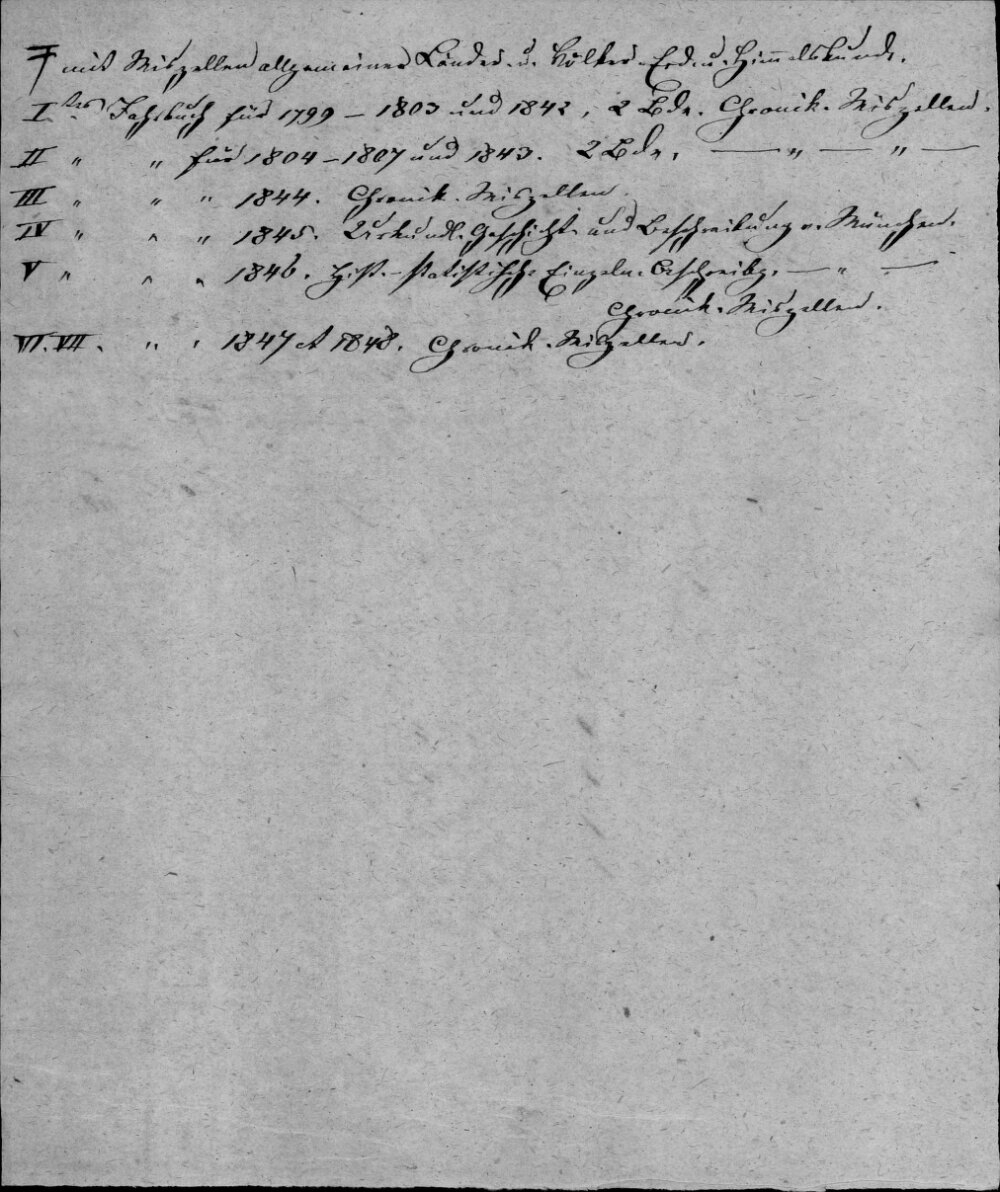 mit Miszellen allgemeiner Länder- u. Völker- Erd- u. Himmelskunde.
I.tes Jahrbuch für 1799 – 1803 und 1842, 2 Bde. Chronik. Miszellen.
II " " für 1804 – 1807 und 1843. 2 Bde, — " — " —
III " " " 1844. Chronik. Miszellen.
IV " " " 1845. Urkundl. Geschichte und Beschreibung v. München.
V " " " 1846. Hist.-statistische Einzeln-Beschreibg. — " —
Chronik. Miszellen.
VI. VII. " " 1847 et 1848. Chronik. Miszellen.